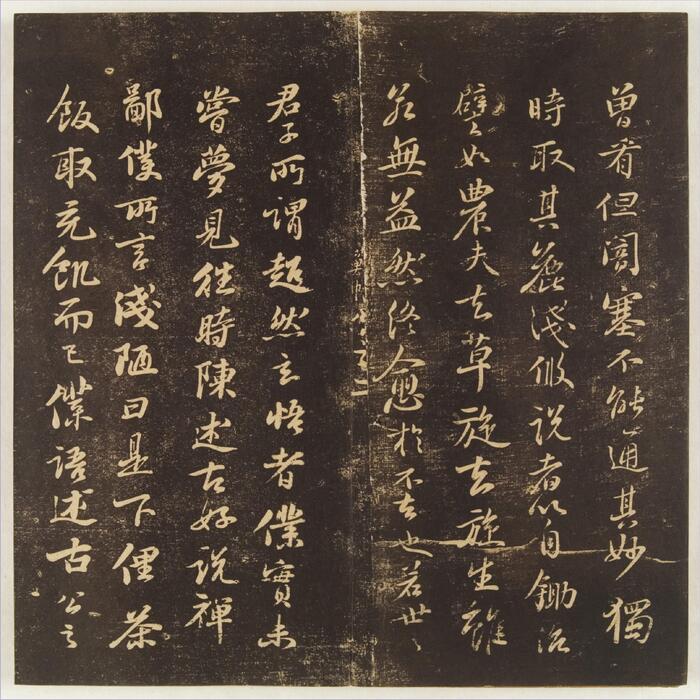 曾看但闇塞不能通其妙獨
時取其麁淺假説者以自鋤治
譬之如農夫去草旋去旋生雖
若無益然終愈於不去也若世之
君子所謂超然玄悟者僕實未
嘗夢見往時陳述古好説禪
鄙僕所言淺陋曰是下俚茶
飯取充飢而已僕語述古公之